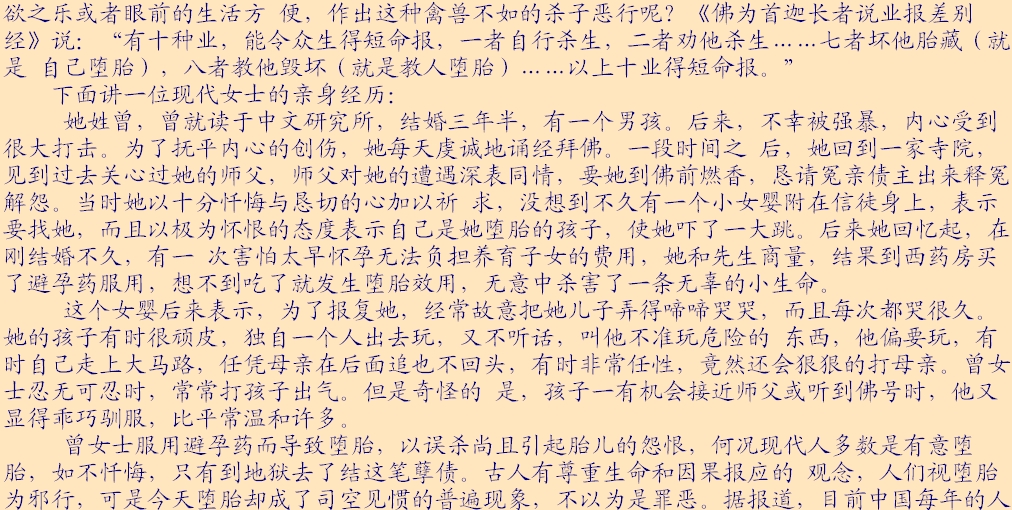 欲之乐或者眼前的生活方 便，作出这种禽兽不如的杀子恶行呢？《佛为首迦长者说业报差别
经》说：“有十种业，能令众生得短命报，一者自行杀生，二者劝他杀生……七者坏他胎藏（就
是 自己堕胎），八者教他毁坏（就是教人堕胎）……以上十业得短命报。”
下面讲一位现代女士的亲身经历：
她姓曾，曾就读于中文研究所，结婚三年半，有一个男孩。后来，不幸被强暴，内心受到
很大打击。为了抚平内心的创伤，她每天虔诚地诵经拜佛。一段时间之 后，她回到一家寺院，
见到过去关心过她的师父，师父对她的遭遇深表同情，要她到佛前燃香，恳请冤亲债主出来释冤
解怨。当时她以十分忏悔与恳切的心加以祈 求，没想到不久有一个小女婴附在信徒身上，表示
要找她，而且以极为怀恨的态度表示自己是她堕胎的孩子，使她吓了一大跳。后来她回忆起，在
刚结婚不久，有一 次害怕太早怀孕无法负担养育子女的费用，她和先生商量，结果到西药房买
了避孕药服用，想不到吃了就发生堕胎效用，无意中杀害了一条无辜的小生命。
这个女婴后来表示，为了报复她，经常故意把她儿子弄得啼啼哭哭，而且每次都哭很久。
她的孩子有时很顽皮，独自一个人出去玩，又不听话，叫他不准玩危险的 东西，他偏要玩，有
时自己走上大马路，任凭母亲在后面追也不回头，有时非常任性，竟然还会狠狠的打母亲。曾女
士忍无可忍时，常常打孩子出气。但是奇怪的 是，孩子一有机会接近师父或听到佛号时，他又
显得乖巧驯服，比平常温和许多。
曾女士服用避孕药而导致堕胎，以误杀尚且引起胎儿的怨恨，何况现代人多数是有意堕
胎，如不忏悔，只有到地狱去了结这笔孽债。古人有尊重生命和因果报应的 观念，人们视堕胎
为邪行，可是今天堕胎却成了司空见惯的普遍现象，不以为是罪恶。据报道，目前中国每年的人